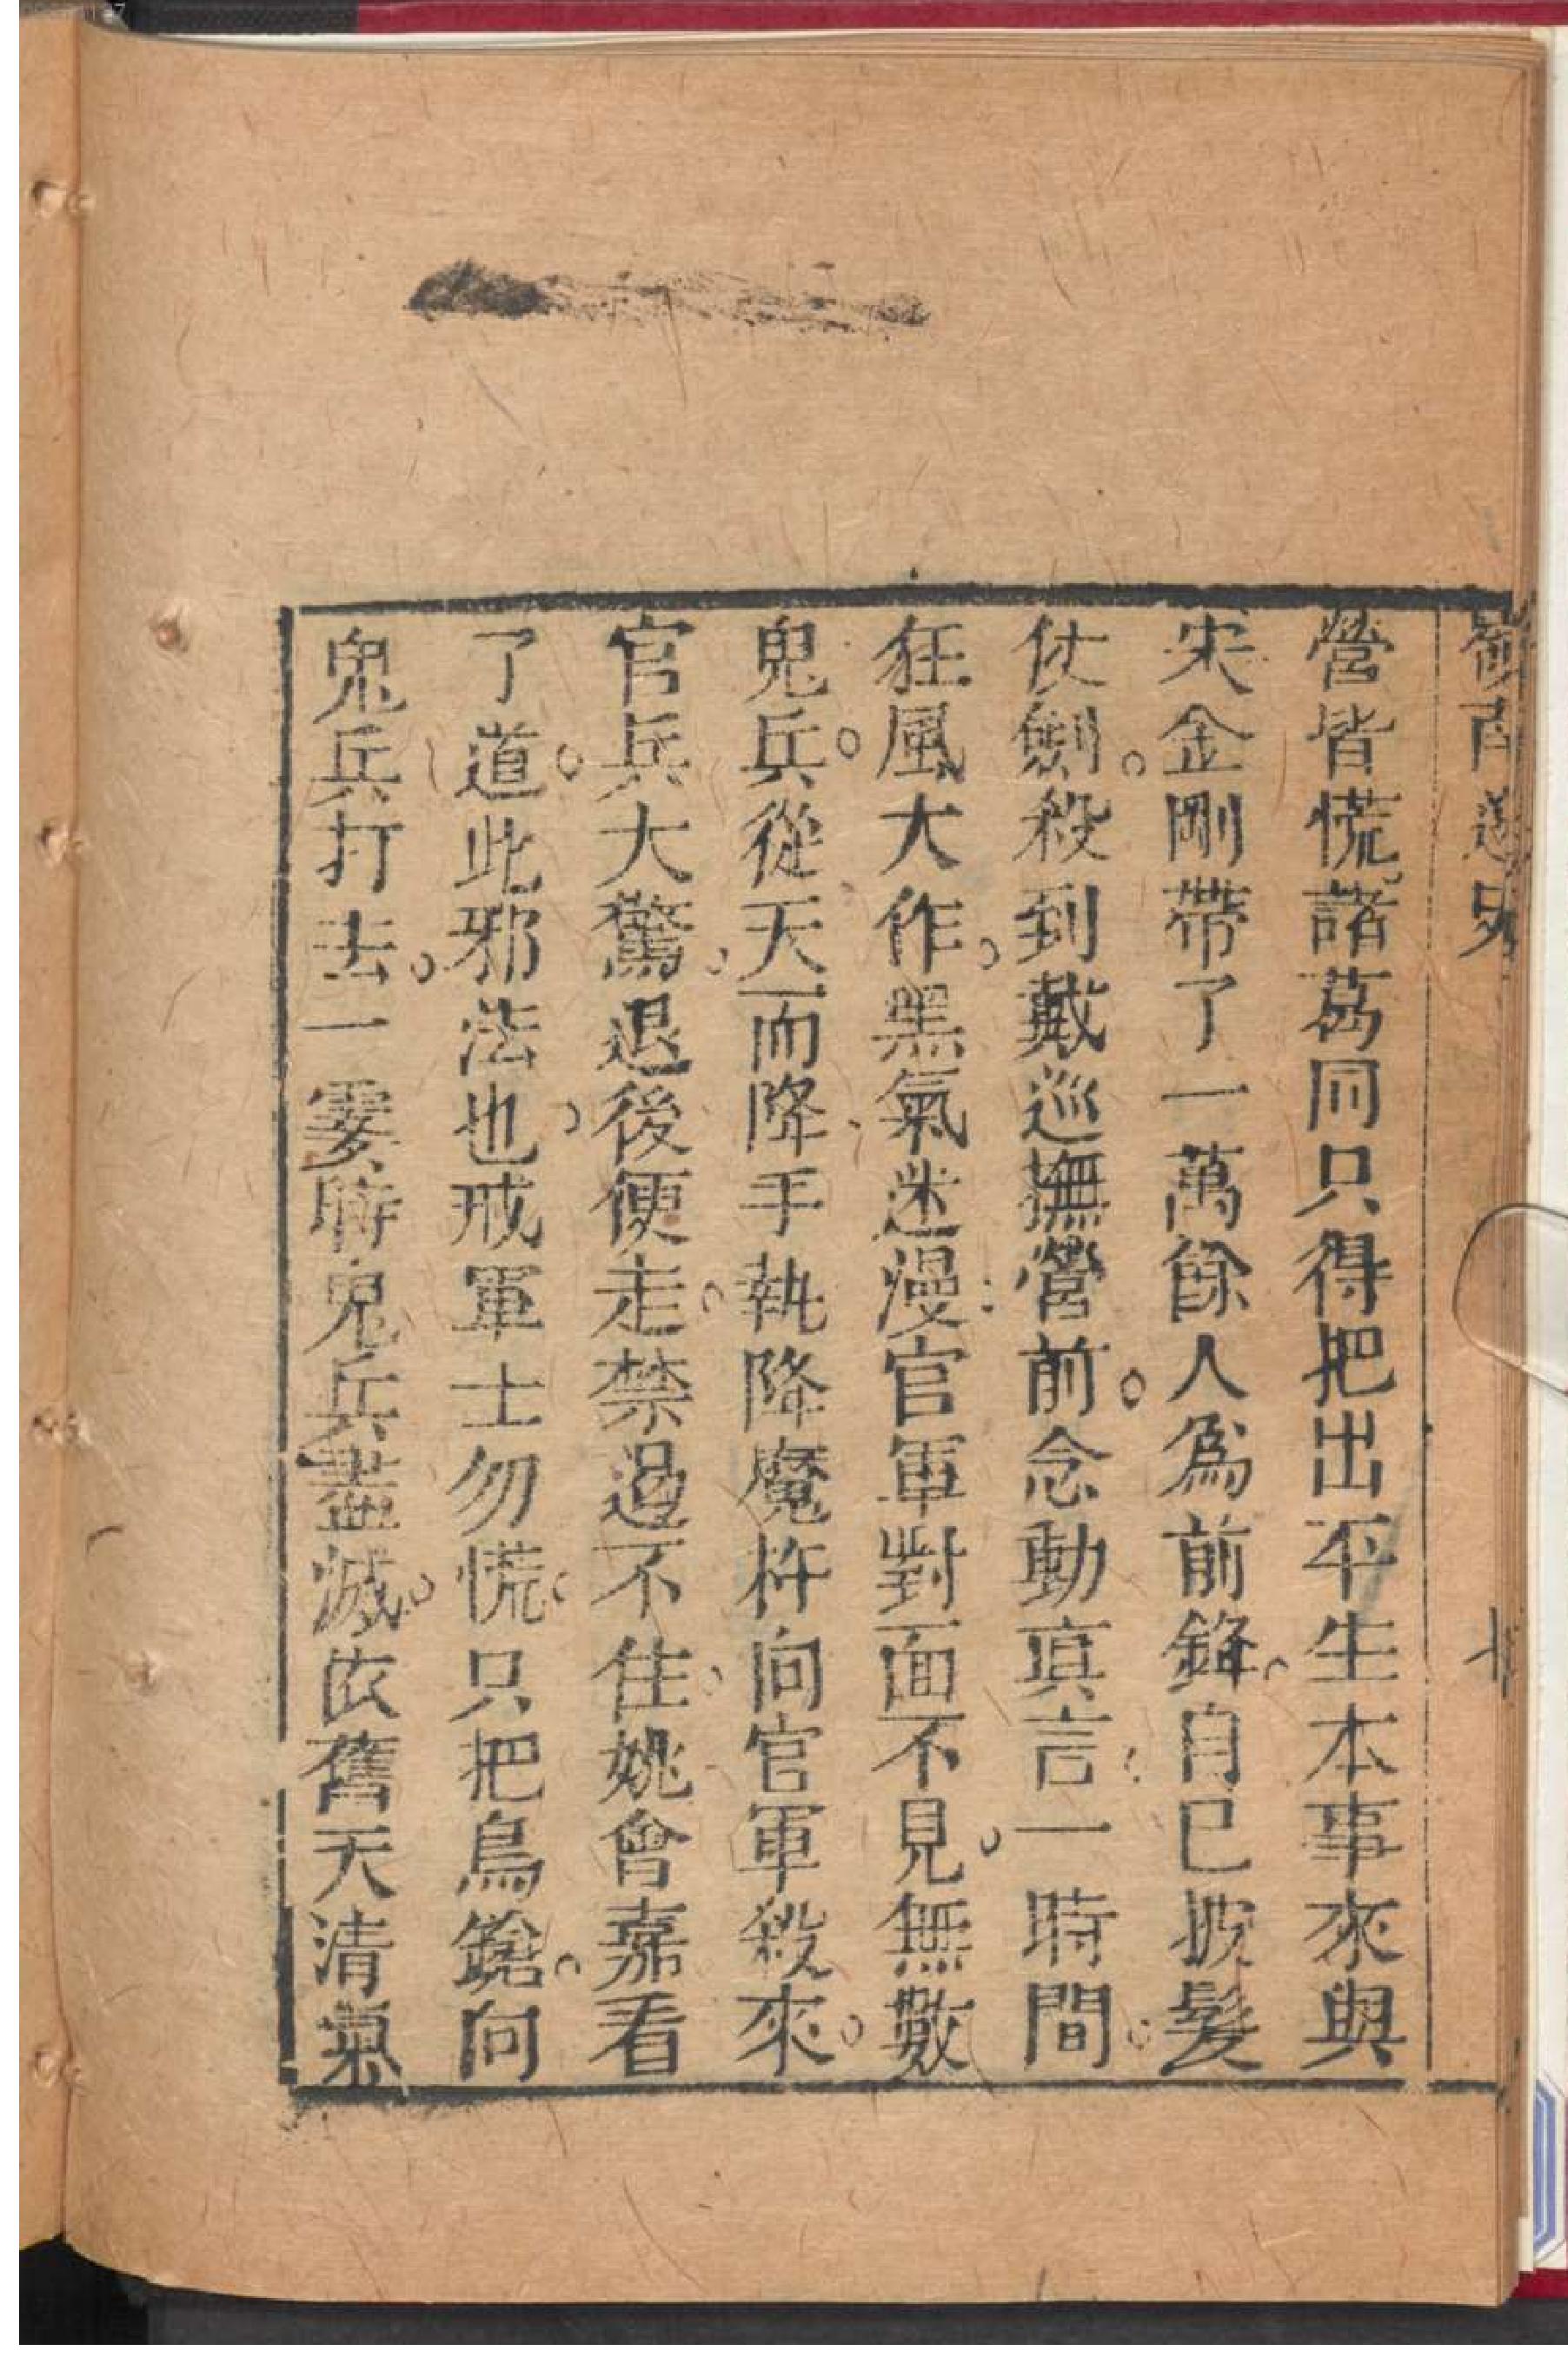 嶺南逸史
營皆慌諸葛同只得把出平生本事來與
宋金剛帶了一萬餘人為前鋒。自已披髮
仗劍。殺到戴巡撫營前。念動真言一時間。
狂風大作。黑氣迷漫官軍對面不見。無數
鬼兵。從天而降手執降魔杵向官軍殺來。
官兵大驚退後便走。禁遏不住。姚曾嘉看
了道。此邪法也。戒軍士勿慌。只把鳥鎗。向
鬼兵打去。一霎時鬼兵盡滅。依舊天清氣